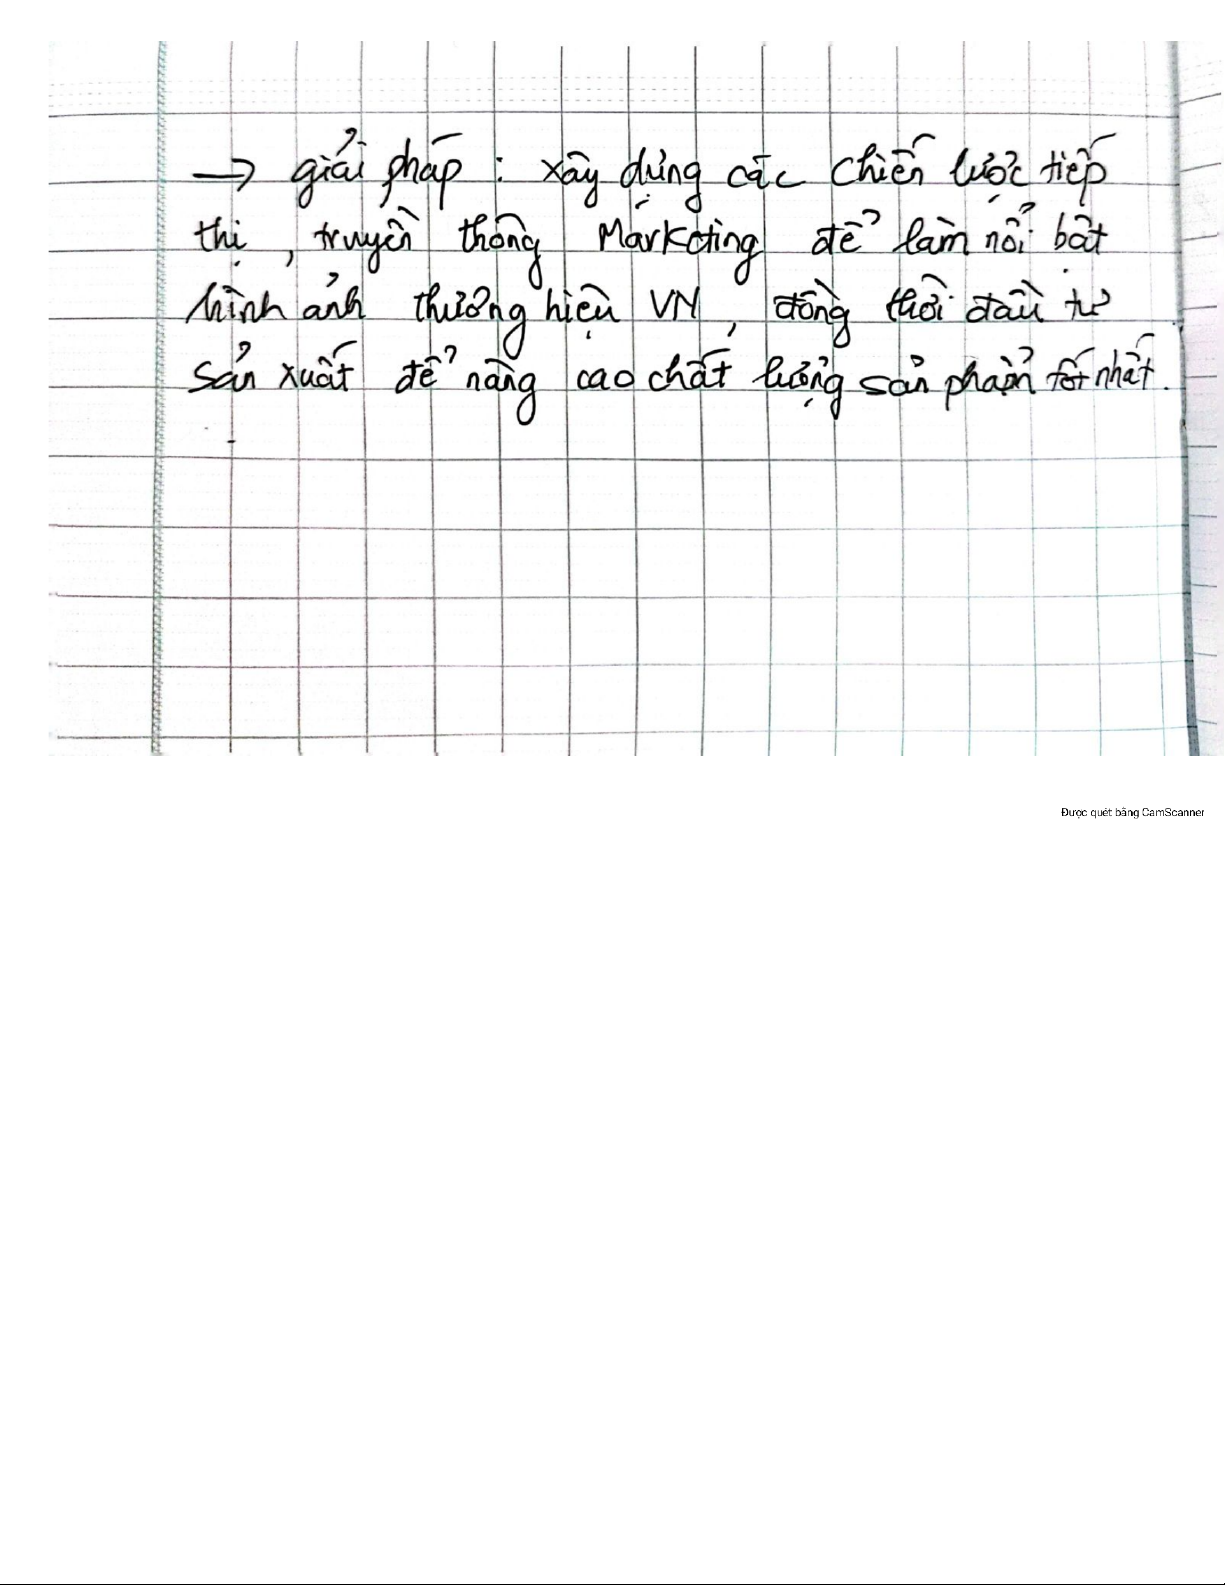 → giải pháp : xây dựng các chiến lược tiếp
thị, truyền thông Marketing để làm nổi bật
hình ảnh thương hiệu VN, đồng thời đầu tư
sản xuất để nâng cao chất lượng sản phẩm tốt nhất.
Được quét bằng CamScanner